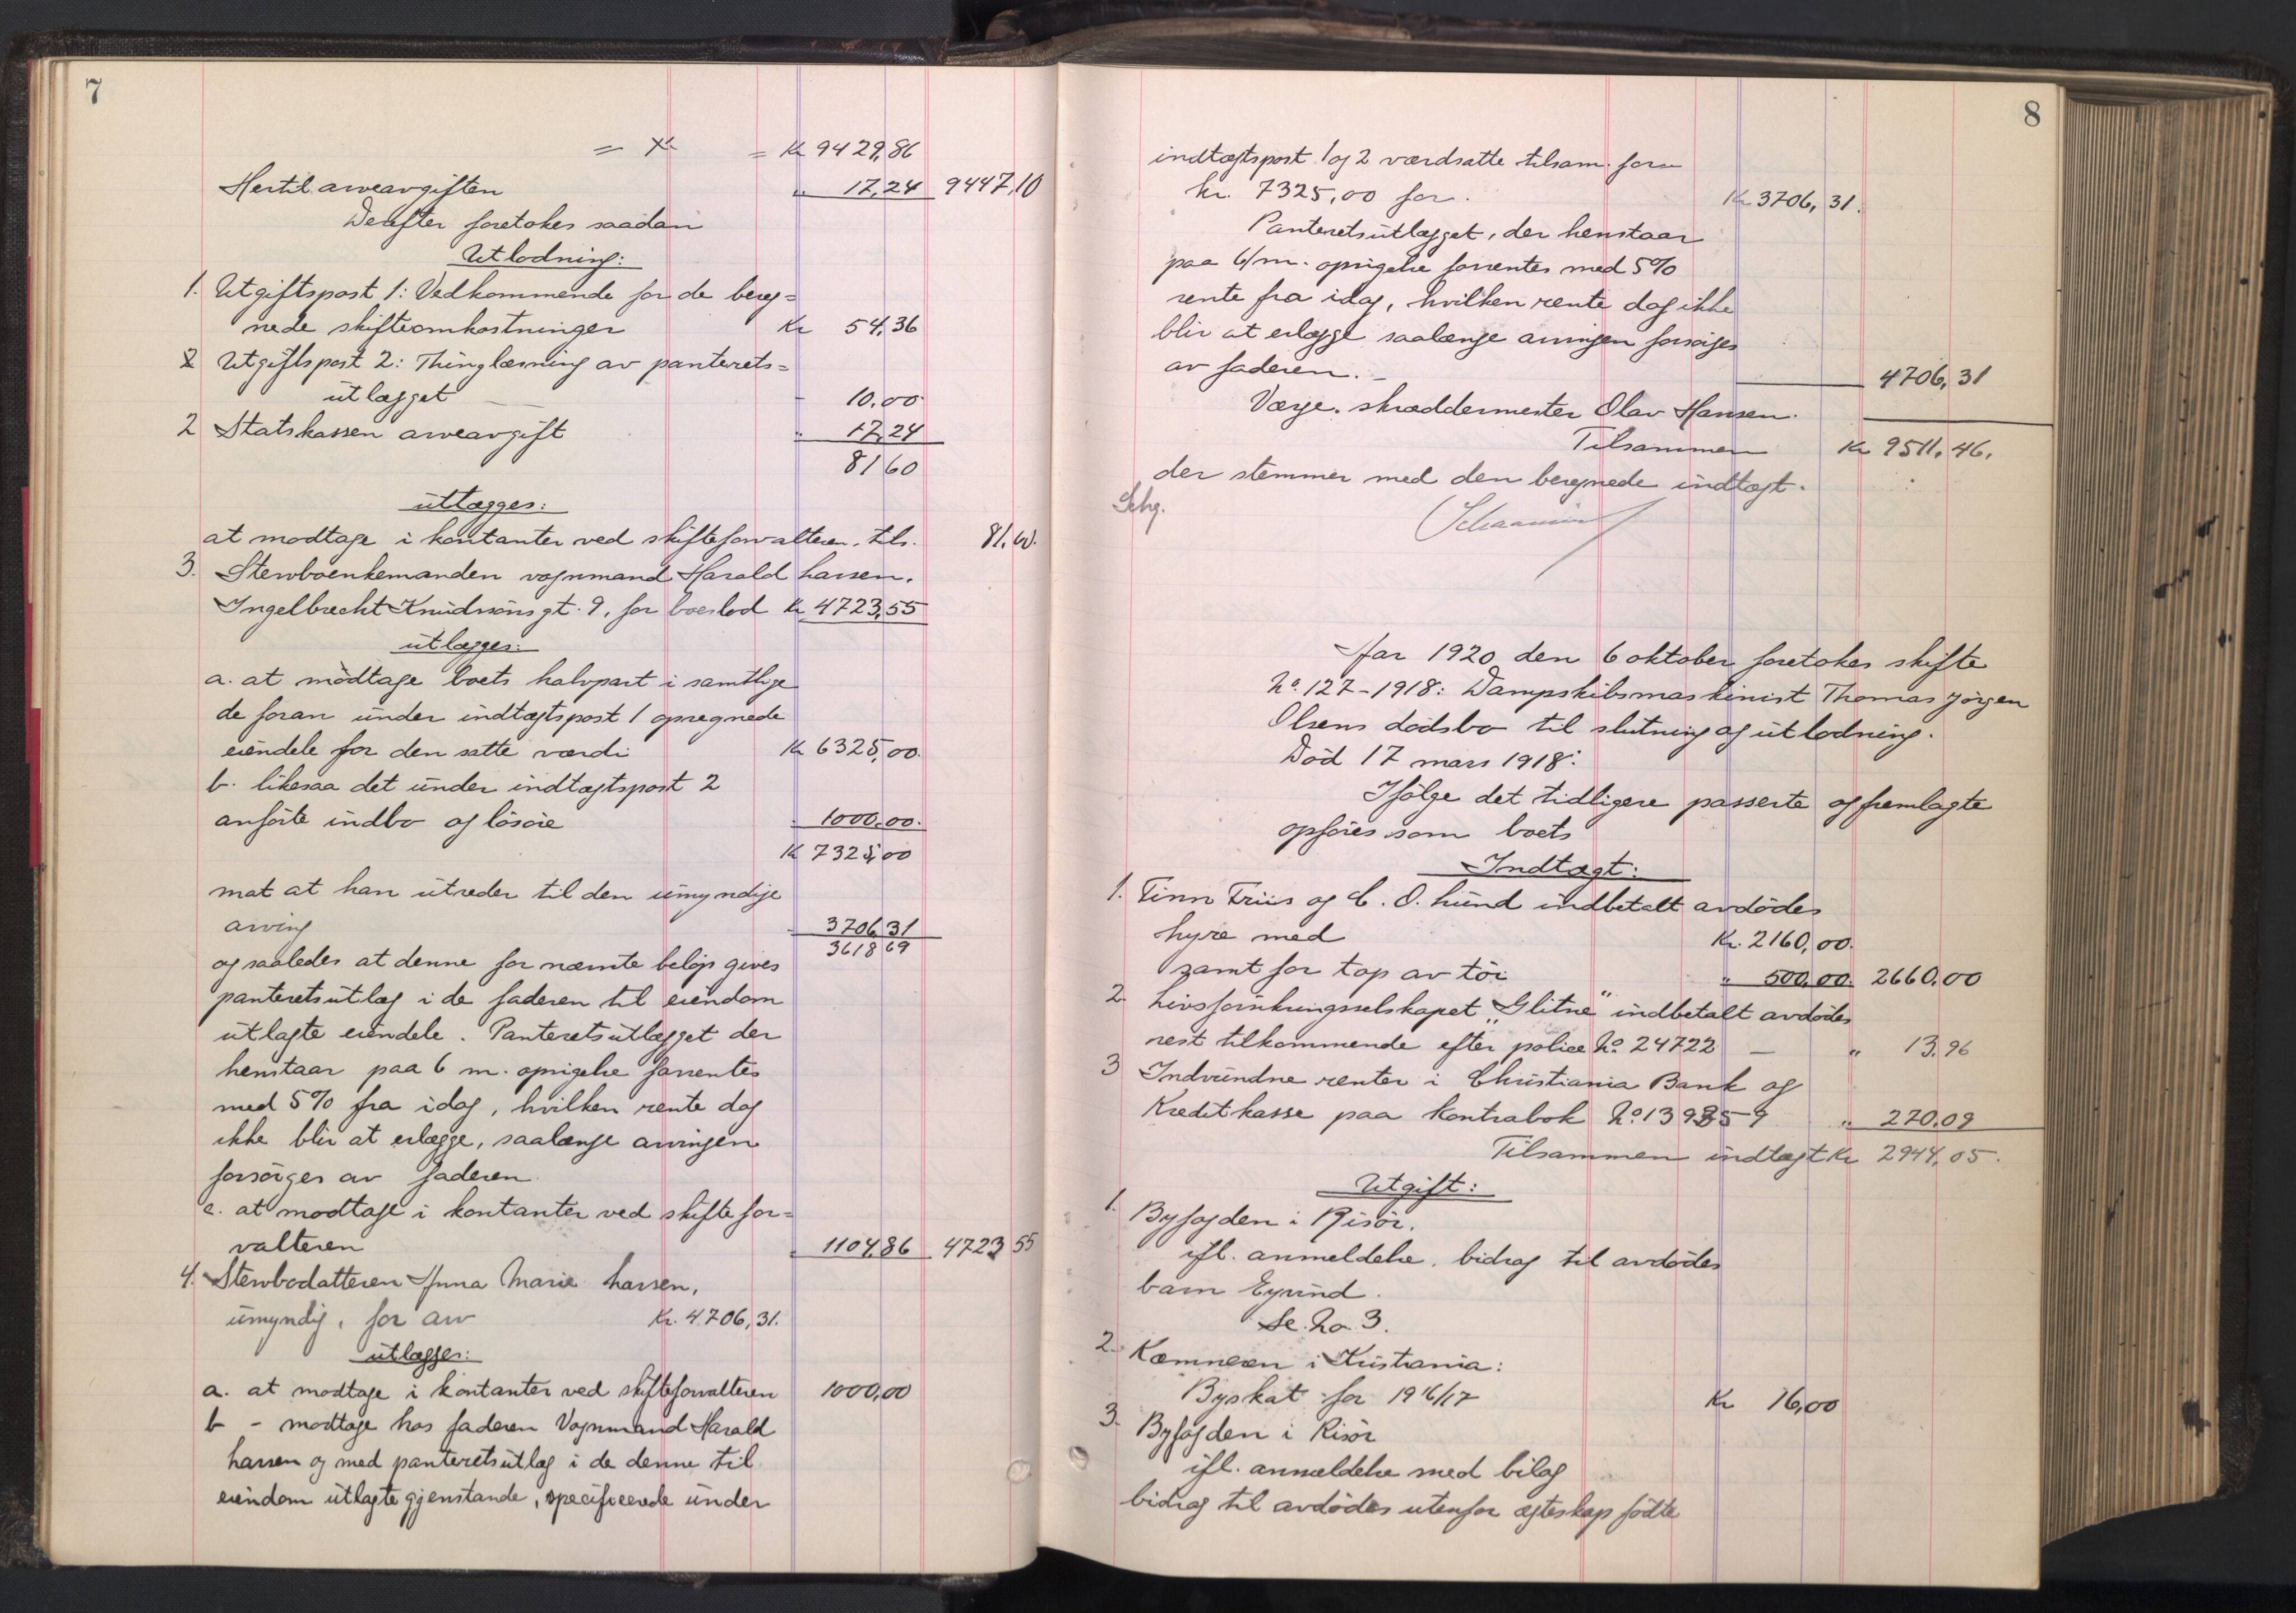 7
= Kr = Kr 9429,86
Hertil arveavgiften " 17,24 9447,10
Derefter foretokes saadan
Utlodning:
1. Utgiftspost 1: Vedkommende for de bereg=
nede skifteomkostninger Kr 54,36
2 Utgiftspost 2: Thinglæsning av panterets=
utlægget - 10,00
2 Statskassen arveavgift " 17,24
81 60
utlægges:
at modtage i kontanter ved skifteforvalteren, tils. 81,60.
3. Stervboenkemanden vognmand Harald Larsen,
Ingelbrecht Knudssøns gt. 9, for boeslod Kr 4723,55
utlægges:
a. at modtage boets halvpart i samtlige
de foran under indtægtspost 1 opregnede
eiendele for den satte værdi Kr 6325,00.
b. likesaa det under indtægtspost 2
anførte indbo og løsøre " 1000,00.
Kr 7325,00
mot at han utreder til den umyndige
arving - 3706,31
3618 69
og saaledes at denne for nævnte beløp gives
panteretsutlæg i de faderen til eiendom
utlagte eiendele. Panteretsutlægget der
henstaar paa 6 m. opsigelse forrentes
med 5% fra idag, hvilken rente dog
ikke blir at erlægge, saalænge arvingen
forsørges av faderen.
c. at modtage i kontanter ved skiftefor=
valteren " 1104,86 4723 55
4. Stervbodatteren Anna Marie Larsen,
umyndig, for arv Kr. 4706,31.
utlægges:
a. at modtage i kontanter ved skifteforvalteren 1000,00
b - modtage hos faderen Vognmand Harald
Larsen og med panteretsutlæg i de denne til
eiendom utlagte gjenstande, specificerede under
8
indtægtspost 1 og 2 værdsatte tilsam. foran
kr. 7325,00 for. Kr 3706,31.
Panteretsutlægget, der henstaar
paa 6/m. opsigelse forrentes med 5%
rente fra idag, hvilken rente dog ikke
blir at erlægge saalænge arvingen forsørges
av faderen. - 4706,31
Værge. skræddermester Olav Hansen.
Tilsammen Kr 9511,46.
der stemmer med den beregnede indtægt.
Schg.
Aar 1920 den 6 oktober foretokes skifte
No. 127-1918: Dampskibsmaskinist Thomas Jørgen
Olsens dødsbo til slutning og utlodning.
Død 17 mars 1918:
Ifølge det tidligere passerte og fremlagte
opføres som boets
Indtægt:
1. Finn Friis og C. O. Lund indbetalt avdødes
hyre med Kr. 2160,00.
samt for tap av tøi " 500,00. 2660,00
2. Livsforsikringsselskapet „Glitne" indbetalt avdødes
rest tilkommende efter police No 24722 - " 13,96
3 Indvundne renter i Christiania Bank og
Kreditkasse paa kontrabok No 139359 " 270,09
Tilsammen indtægt Kr 2944,05.
Utgift:
1. Byfogden i Risør.
ifl. anmeldelse, bidrag til avdødes
barn Eyvind.
Se. No. 3.
2. Kæmneren i Kristiania:
Byskat for 1916/17 Kr 16,00
3. Byfogden i Risør
ifl. anmeldelse med bilag
bidrag til avdødes utenfor egteskap fødte